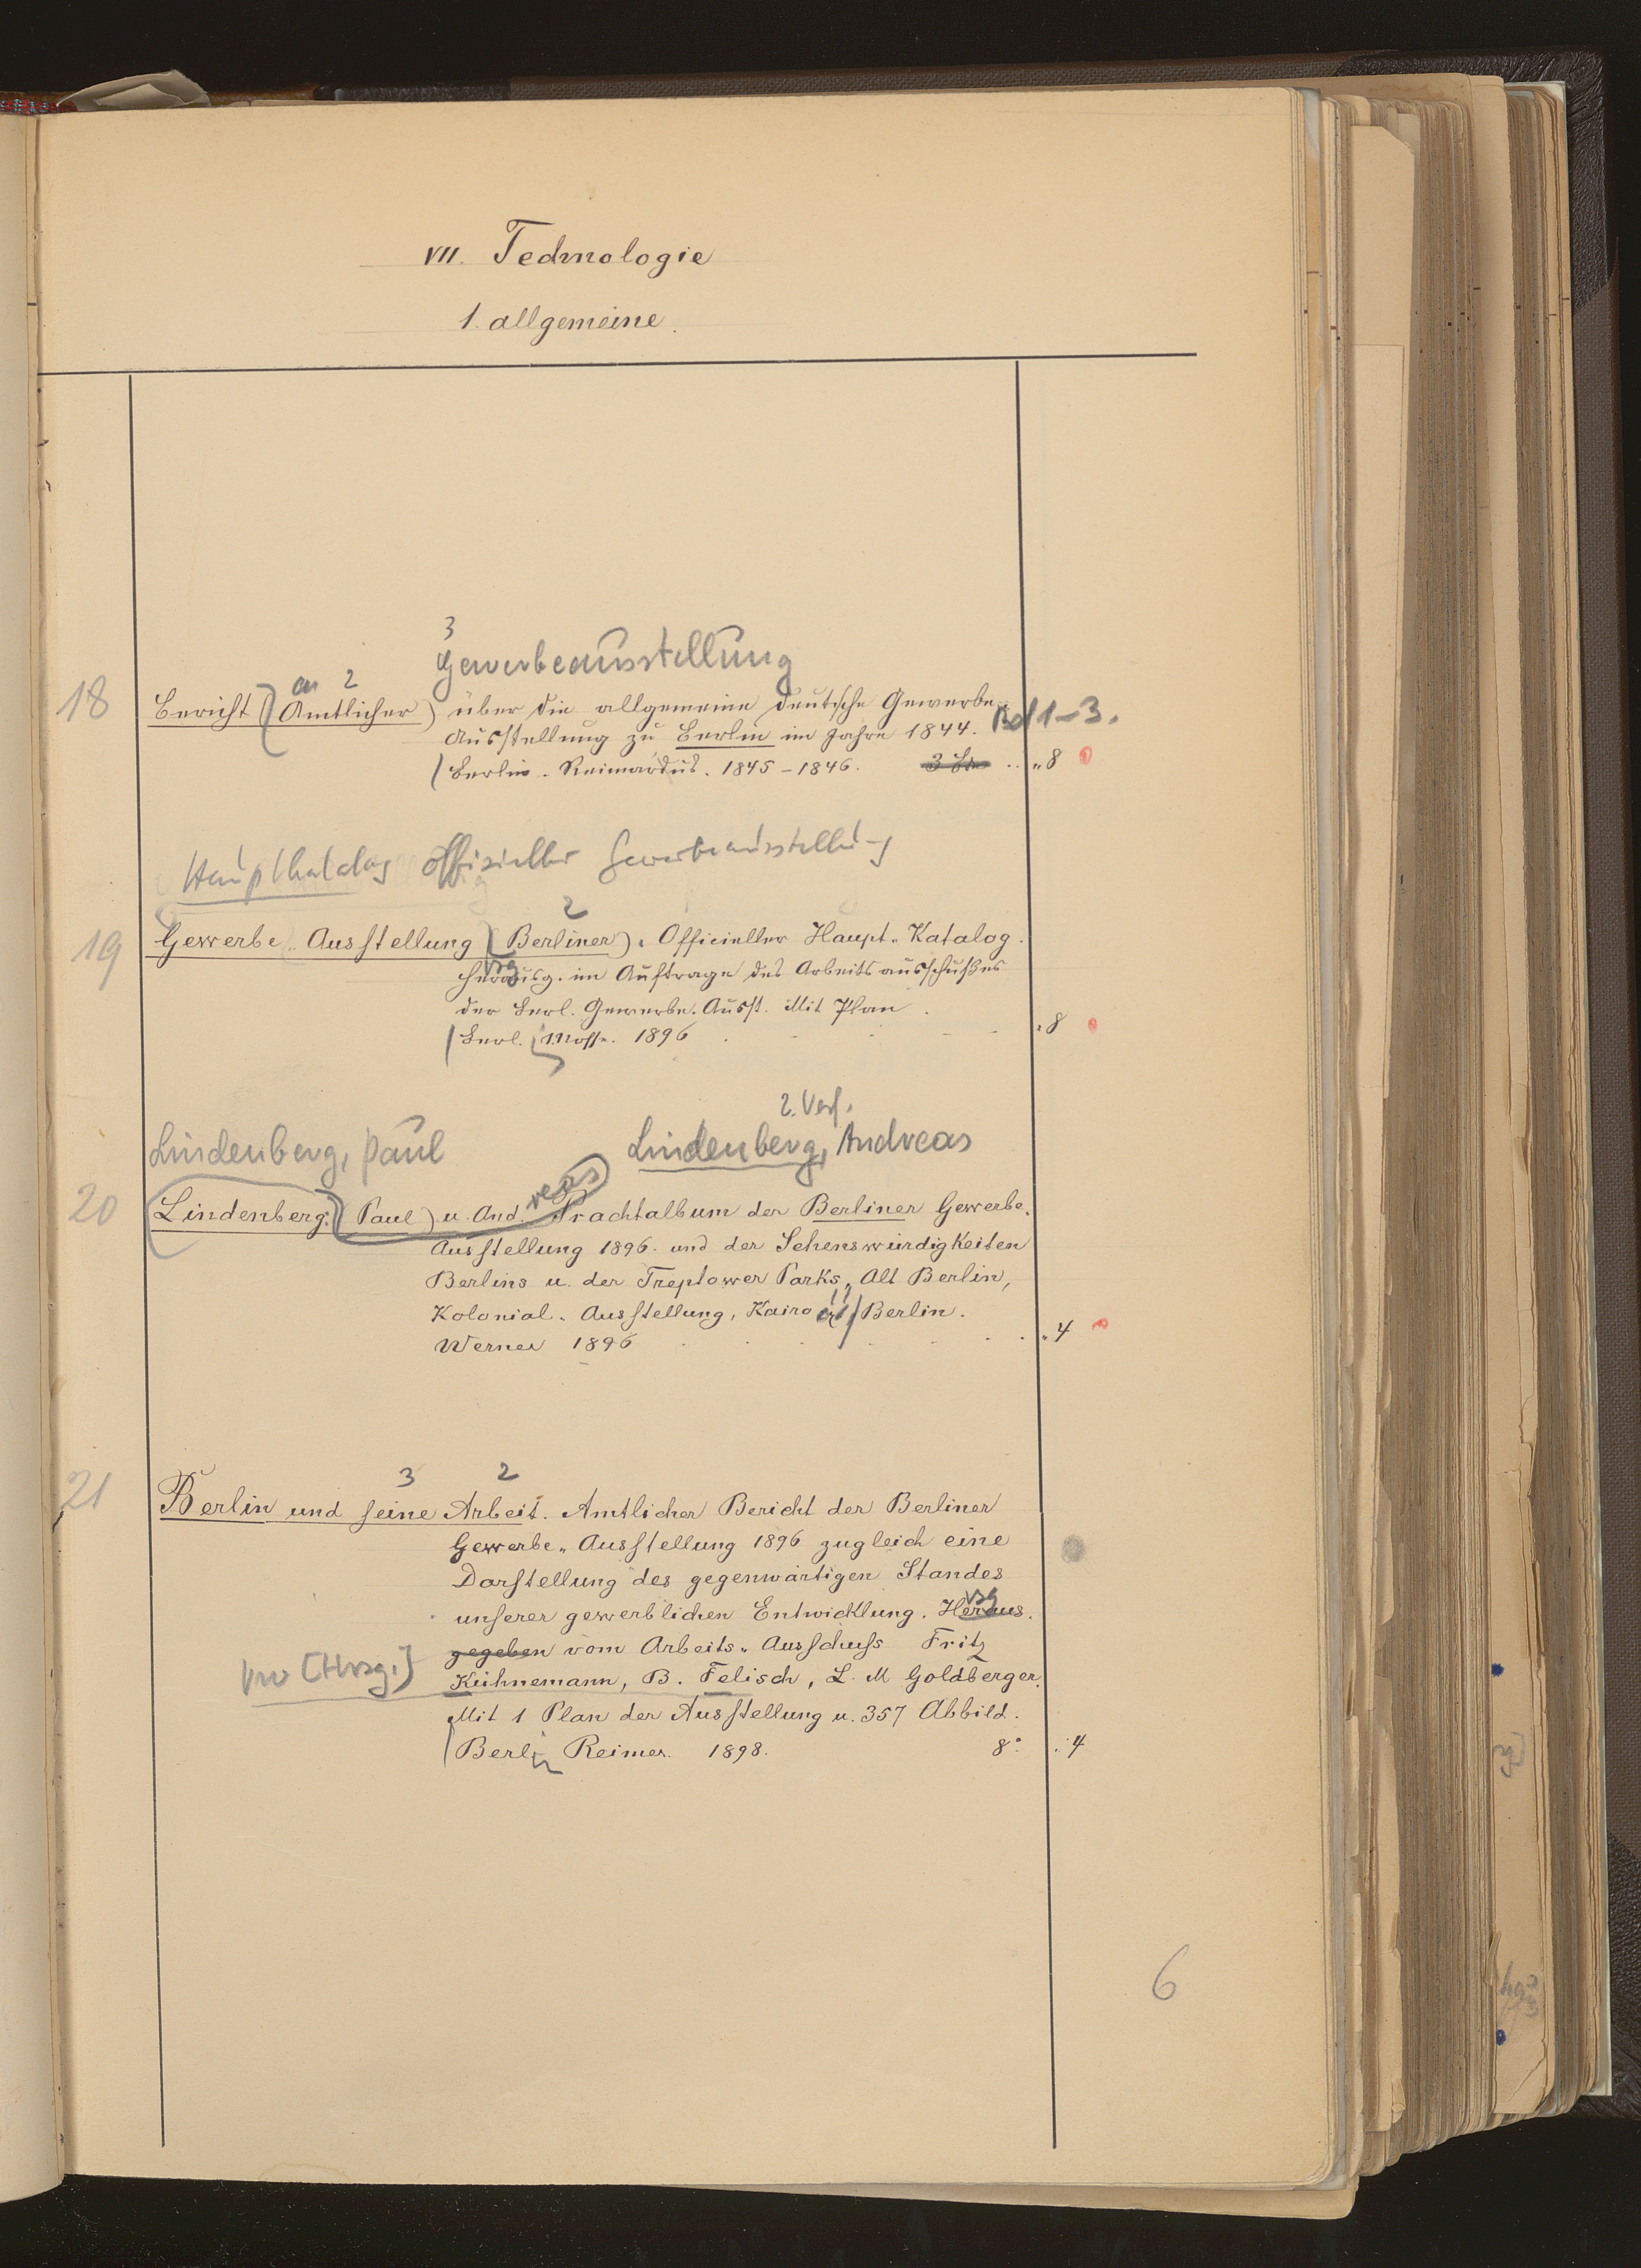 VII. Technologie
1. allgemeine.
3
Gewerbeausstellung
an 2
18 Bericht (Amtlicher) über die allgemeine deutsche Gewerbe-
Ausstellung zu Berlin im Jahre 1844. Bd 1-3.
Berlin. Reimardus. 1845-1846. 3 Bde „8
Hauptkatalog offizieller Gewerbeausstellung
2
19 Gewerbe-Ausstellung (Berliner). Officieller Haupt-Katalog.
Herausg. im Auftrage des Arbeitsausschußes
der Berl. Gewerbe-Ausst. Mit Plan.
Berl. Mosse. 1896 „8
2. Verf.
Lindenberg, Paul Lindenberg, Andreas
20 Lindenberg. (Paul) u. Andreas Prachtalbum der Berliner Gewerbe-
Ausstellung 1896. und der Sehenswürdigkeiten
Berlins u. der Treptower Parks, Alt Berlin,
Kolonial-Ausstellung, Kairo Berlin.
Werner 1896 „4
3 2
21 Berlin und seine Arbeit. Amtlicher Bericht der Berliner
Gewerbe-Ausstellung 1896 zugleich eine
Darstellung des gegenwärtigen Standes
unserer gewerblichen Entwicklung. Heraus-
gegeben vom Arbeits-Ausschuss Fritz
[Hrsg.] Kühnemann, B. Felisch, L. M Goldberger.
Mit 1 Plan der Ausstellung u. 357 Abbild.
Berlin Reimer. 1898. 8° „4
6